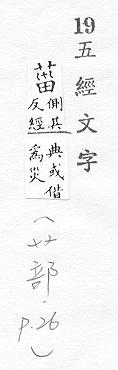 19 五經文字
菑
側其
反經
典或借
爲災
(艹部, p.26)